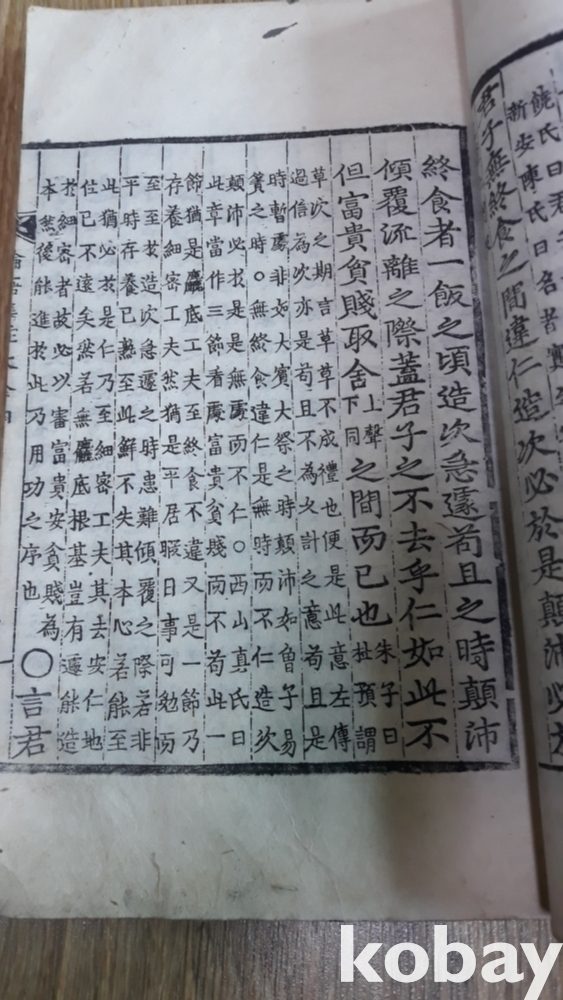 饒氏曰君子
新安陳氏曰名者實
君子無終食之間違仁造次必於是顚沛必於
終食者一飯之頃造次急遽苟且之時顚沛
傾覆流離之際蓋君子之不去乎仁如此不
但富貴貧賤取舍上聲下同之間而已也朱子曰杜預謂
草次之期言草草不成禮也便是此意左傳
過信為次亦是苟且不為久計之意苟且是
時暫處非如大賓大祭之時顚沛如曾子易
簀之時○無終食違仁是無時而不仁造次
顚沛必於是是無處而不仁○西山真氏曰
此章當作三節看處富貴貧賤而不苟此一
節猶是麤底工夫至終食不違又是一節乃
存養細密工夫然猶是平居暇日事可勉而
至至於造次急遽之時患難傾覆之際若非
平時存養已熟至此鮮不失其本心若能至
此猶必於是仁乃至細密工夫其去安仁地
位已不遠矣然若無麤底根基豈有遽能造
於細密者故必以審富貴安貧賤為
本然後能進於此乃用功之序也○言君
kobay